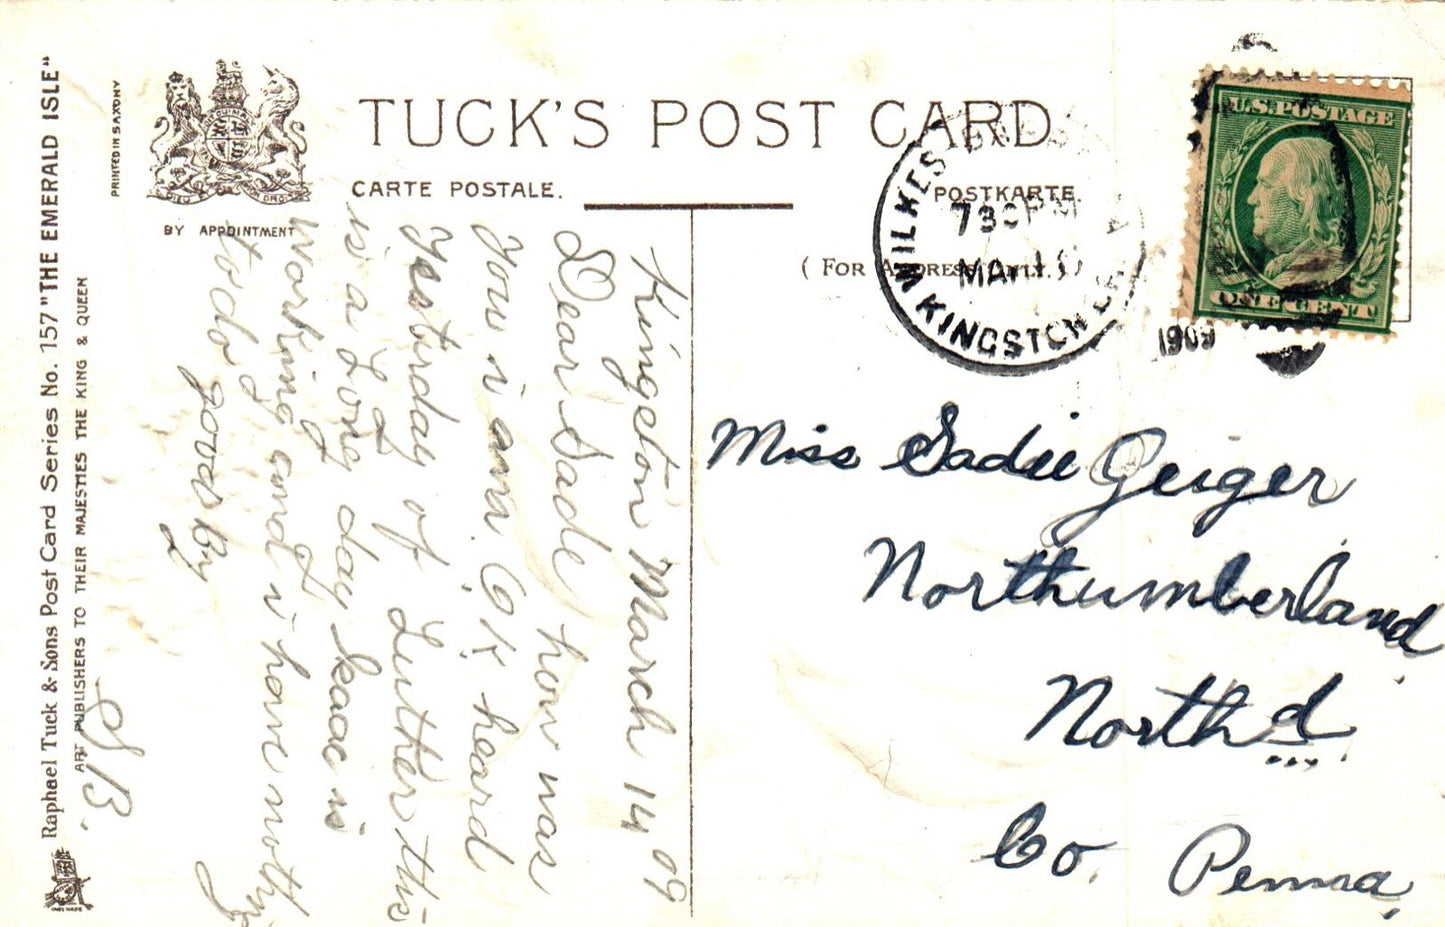 Raphael Tuck & Sons Post Card Series No. 157 "THE EMERALD ISLE"
ART PUBLISHERS TO THEIR MAJESTIES THE KING & QUEEN
PRINTED IN SAXONY
BY APPOINTMENT
TUCK'S POST CARD
CARTE POSTALE.
POSTKARTE.
(FOR ADDRESS ONLY.)
WILKES BARRE
730 PM
MAR
KINGSTON
1909
U.S. POSTAGE
ONE CENT
Kingston March 14 09
Dear Sade how was
You i am OK heard
Yesterday of Luther this
is a Long day Isaac is
Working and i have nothing
to do
good By
S B.
Miss Sadie Geiger
Northumberland
North d
Co. Penna,